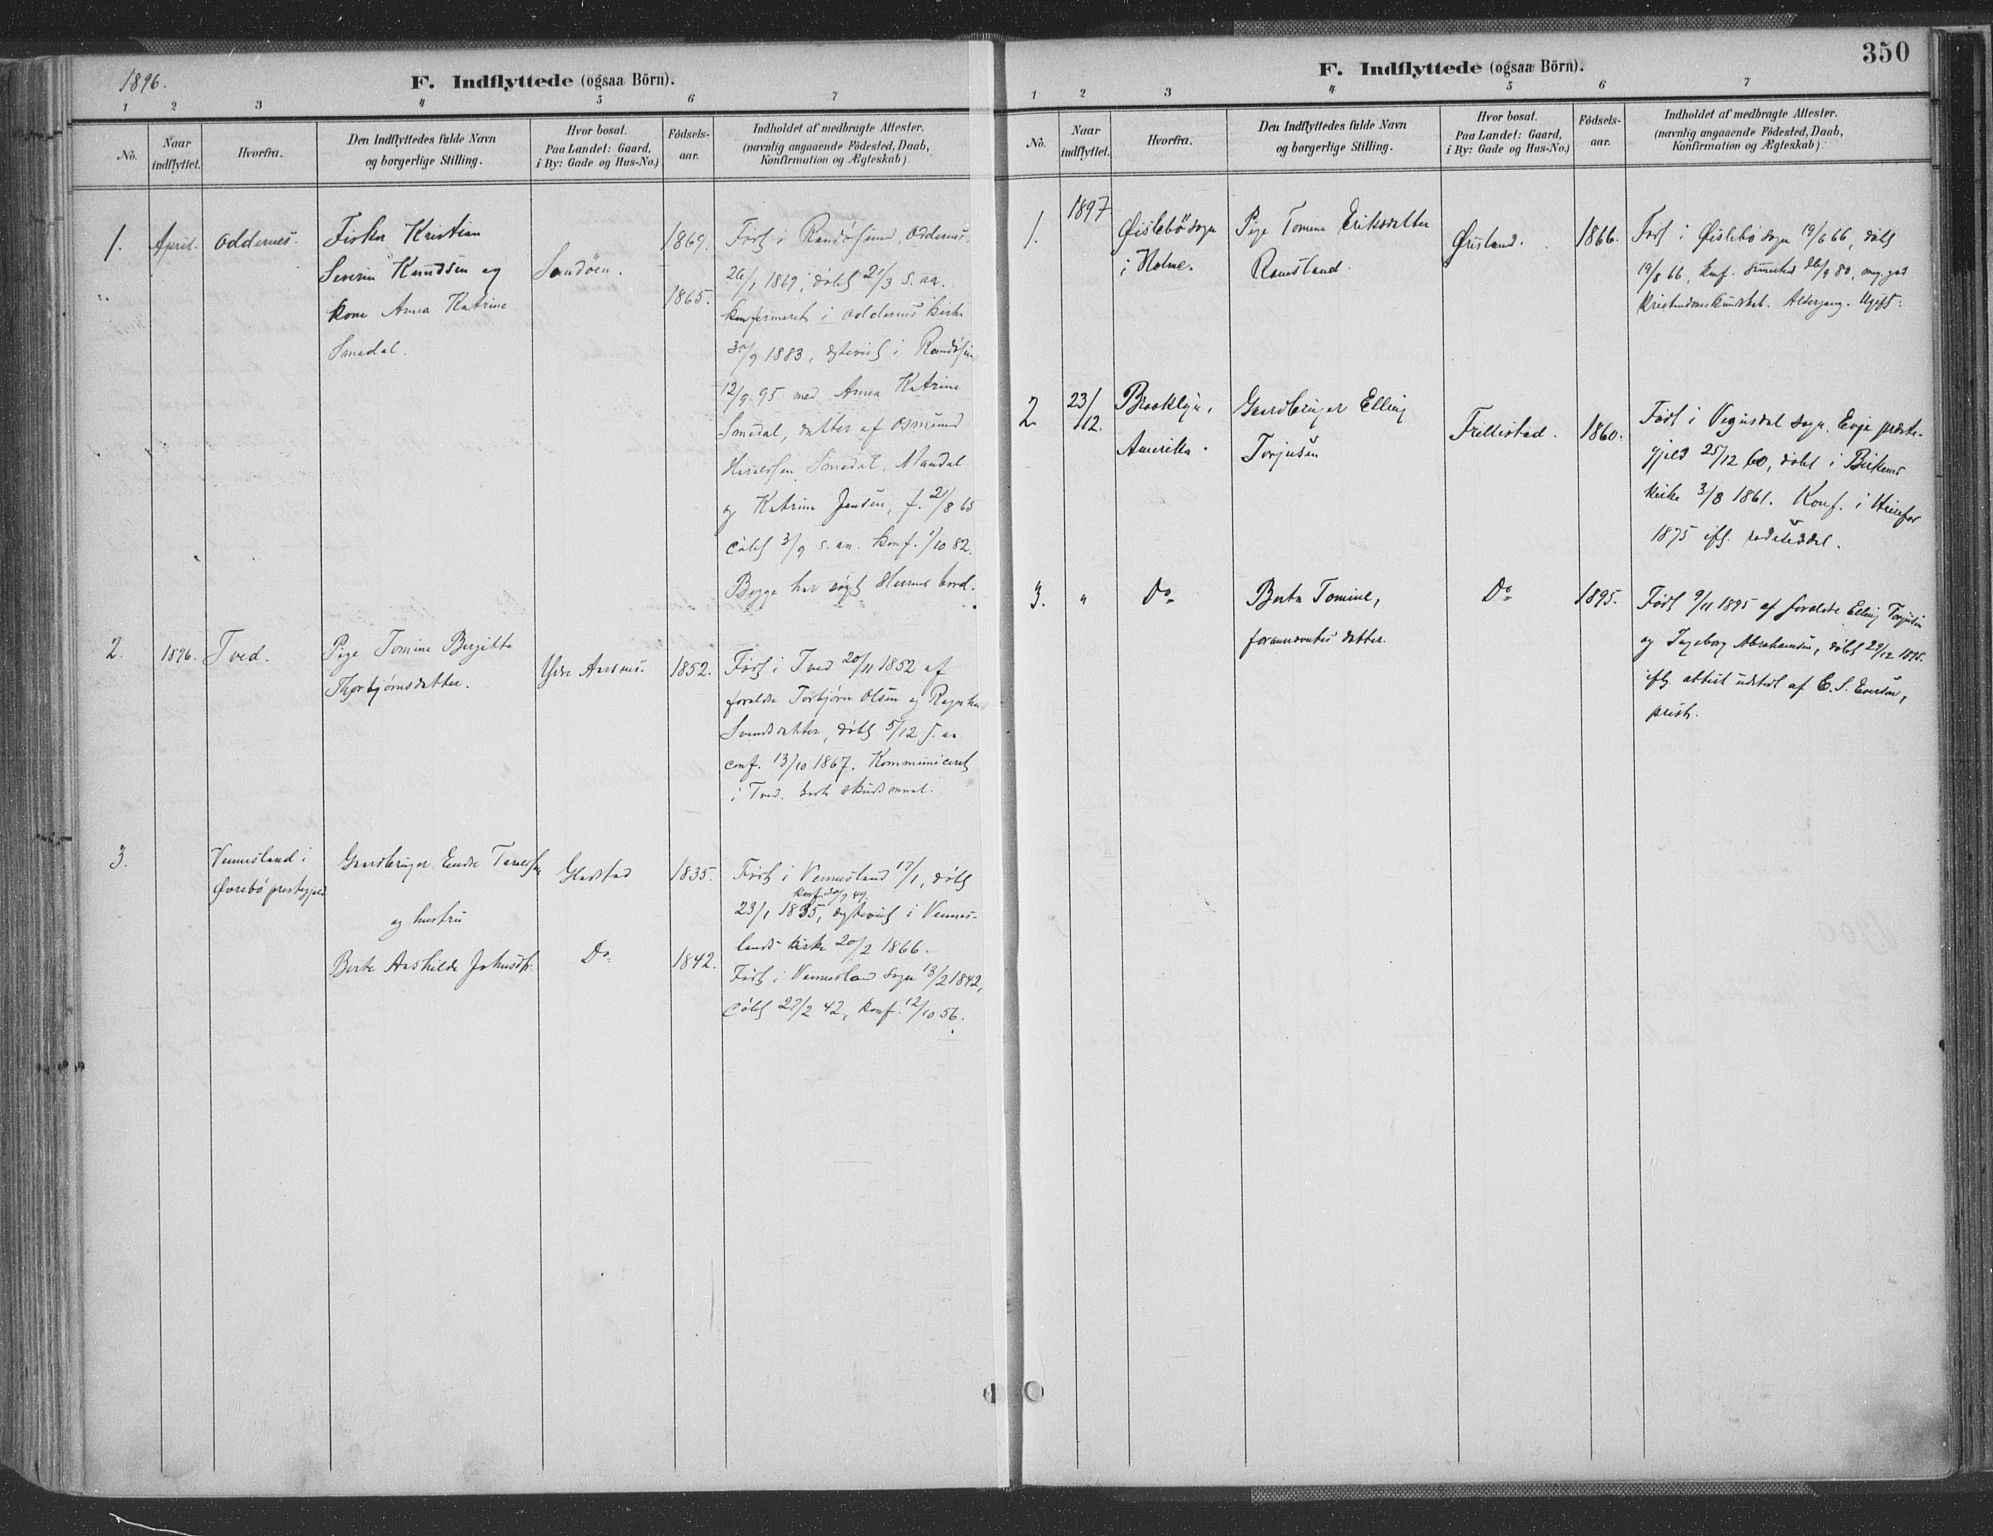 1896.
F. Indflyttede (ogsaa Börn).
1 2 3 4 5 6 7
No.
Naar
indflyttet.
Hvorfra.
Den Indflyttedes fulde Navn
og borgerlige Stilling.
Hvor bosat.
Paa Landet: Gaard,
i By: Gade og Hus-No.)
Födsels-
aar.
Indholdet af medbragte Attester.
(navnlig angaaende Födested, Daab,
Konfirmation og Ægteskab)
1.
April.
Oddernes.
Fisker Kristian
Severin Knudsen og
kone Anna Katrine
Smedal.
Sandöen.
1869.
1865.
Født i Randøsund, Oddernes,
26/1 1869, døbt 21/3 s. aa.
konfirmeret i Oddernes kirke
30/9 1883, egteviet i Randøsund
12/9 95 med Anna Katrine
Smedal, datter af Osmund
Smedal, Mandal
og Katrine Jensen, f. 21/8 65
døbt 3/9 s. aa. konf. 1/10 82.
Begge har søgt Herrens bord.
2.
1896.
Tved.
Pige Tomine Bergitte
Thorbjørnsdatter.
Ydre Aasnes.
1852.
Født i Tved 20/11 1852 af
foreldre Torbjörn Olsen og
Svendsdatter, døbt 5/12 s. aa.
conf. 13/10 1867. Kommuniceret
i Tved.
3.
Vennesland i
Øvrebö prestegjeld
Gaardbruger Endre Taraldsen
og hustru
Berte Aashilde Johnsdtr.
Gladstad
Do
1835.
1842.
Født i Vennesland 17/1, døbt
konf. 30/9 49
23/1 1835, egteviet i Vennes-
lands kirke 20/2 1866.
Født i Vennesland sogn 13/2 1842,
døbt 27/2 42, konf. 12/10 56.
350
F. Indflyttede (ogsaa Börn).
1 2 3 4 5 6 7
No.
Naar
indflyttet.
Hvorfra.
Den Indflyttedes fulde Navn
og borgerlige Stilling.
Hvor bosat.
Paa Landet: Gaard,
i By: Gade og Hus-No.)
Födsels-
aar.
Indholdet af medbragte Attester.
(navnlig angaaende Födested, Daab,
Konfirmation og Ægteskab)
1.
1897
Øislebö sogn
i Holme.
Pige Tomine Eriksdatter
Ramsland.
Øresland.
1866.
Født i Øislebø sogn 19/6 66, døbt
19/8 66, konf. 26/9 80, meg. god
kristendomskundskab. Altergang. Ugift.
2
23/12.
Brooklyn,
Amerika.
Gaardbruger Elling
Torjusen
Frillestad.
1860.
Født i Vegusdal sogn, Evje præste-
gjeld 25/12 60, døbt i Birkenes
kirke 3/3 1861. Konf. i
1875 ifl.
3.
"
Do
Berta Tomine,
forannevntes datter.
Do
1895.
Født 9/11 1895 af foreldre Elling Torjusen
og Ingeborg Abrahamsen, døbt 29/12 1895.
ifl. attest udstedt af C. S. Everson,
prest.